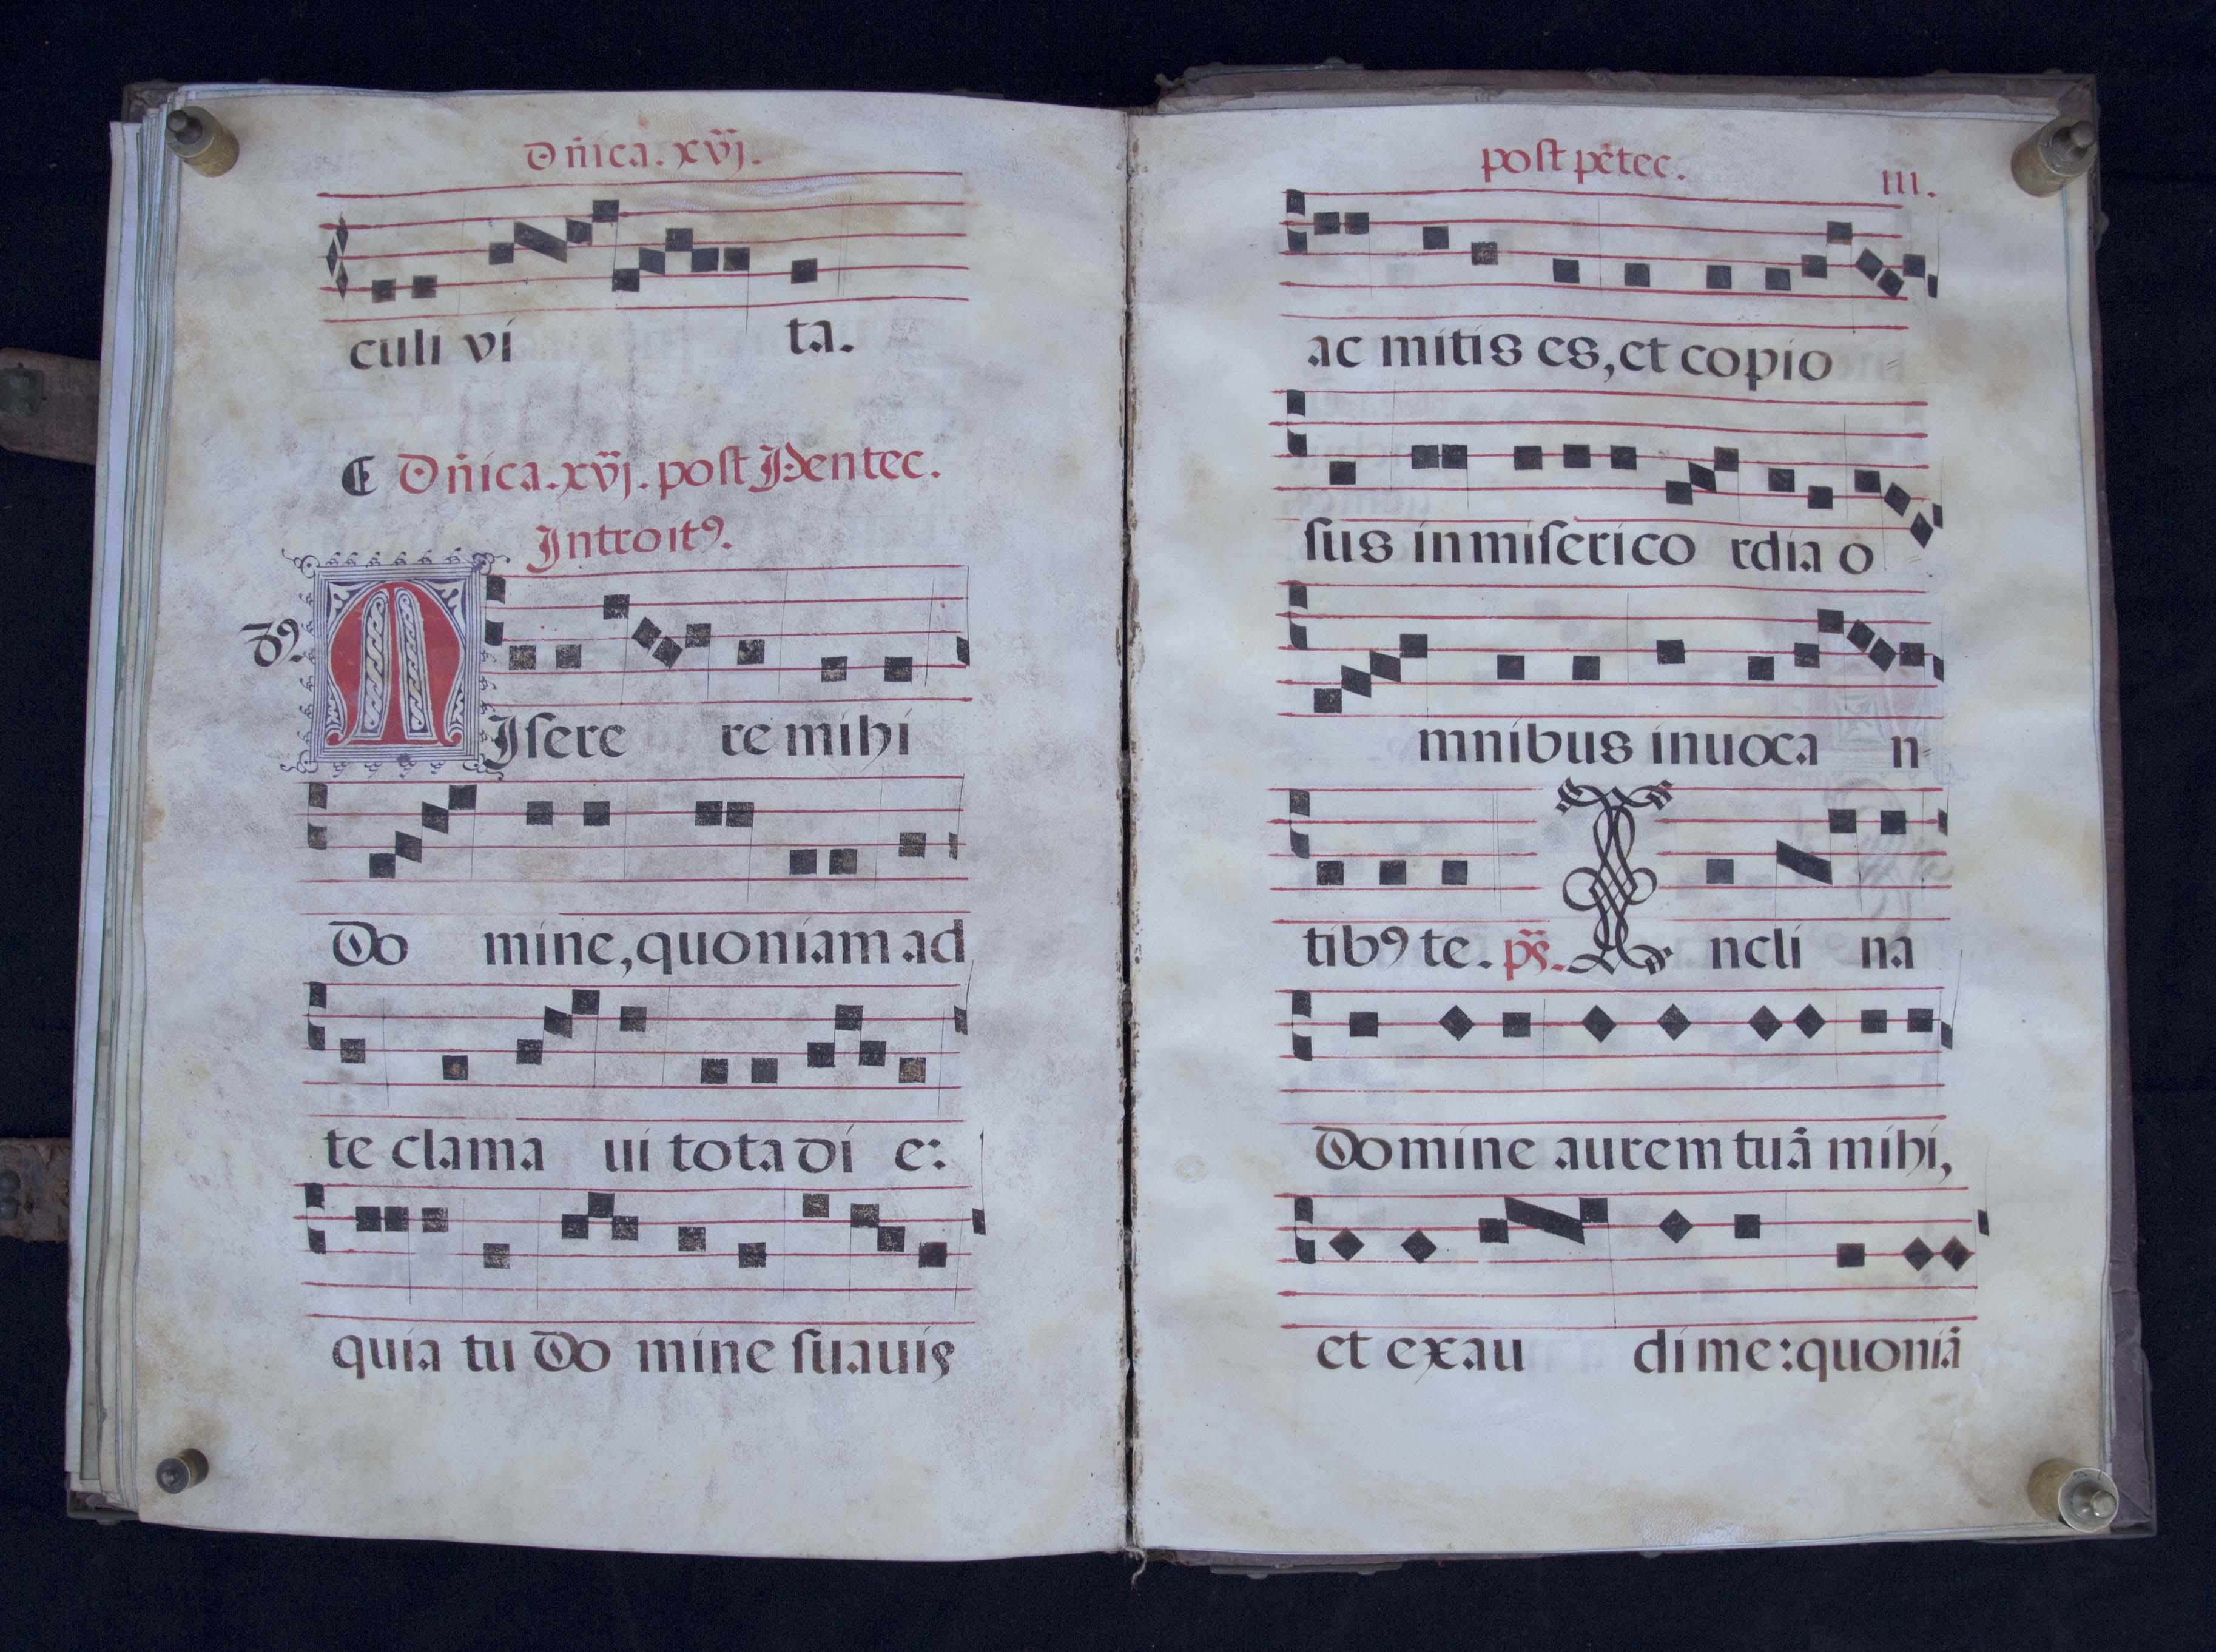 Dñica. xvj.
culi vi ta.
¶ Dñica. xvj. poſt Pentec.
Introitꝰ.
8ꝰ.
MIſere re mihi
Do mine, quoniam ad
te clama ui tota di e:
quia tu Do mine ſuauis
poſt pẽtec.
III.
ac mitis es, et copio
ſus in miſerico rdia o
mnibus inuoca n-
tibꝰ te. p̃s. I ncli na
Domine aurem tuã mihi,
et exau di me: quoniã